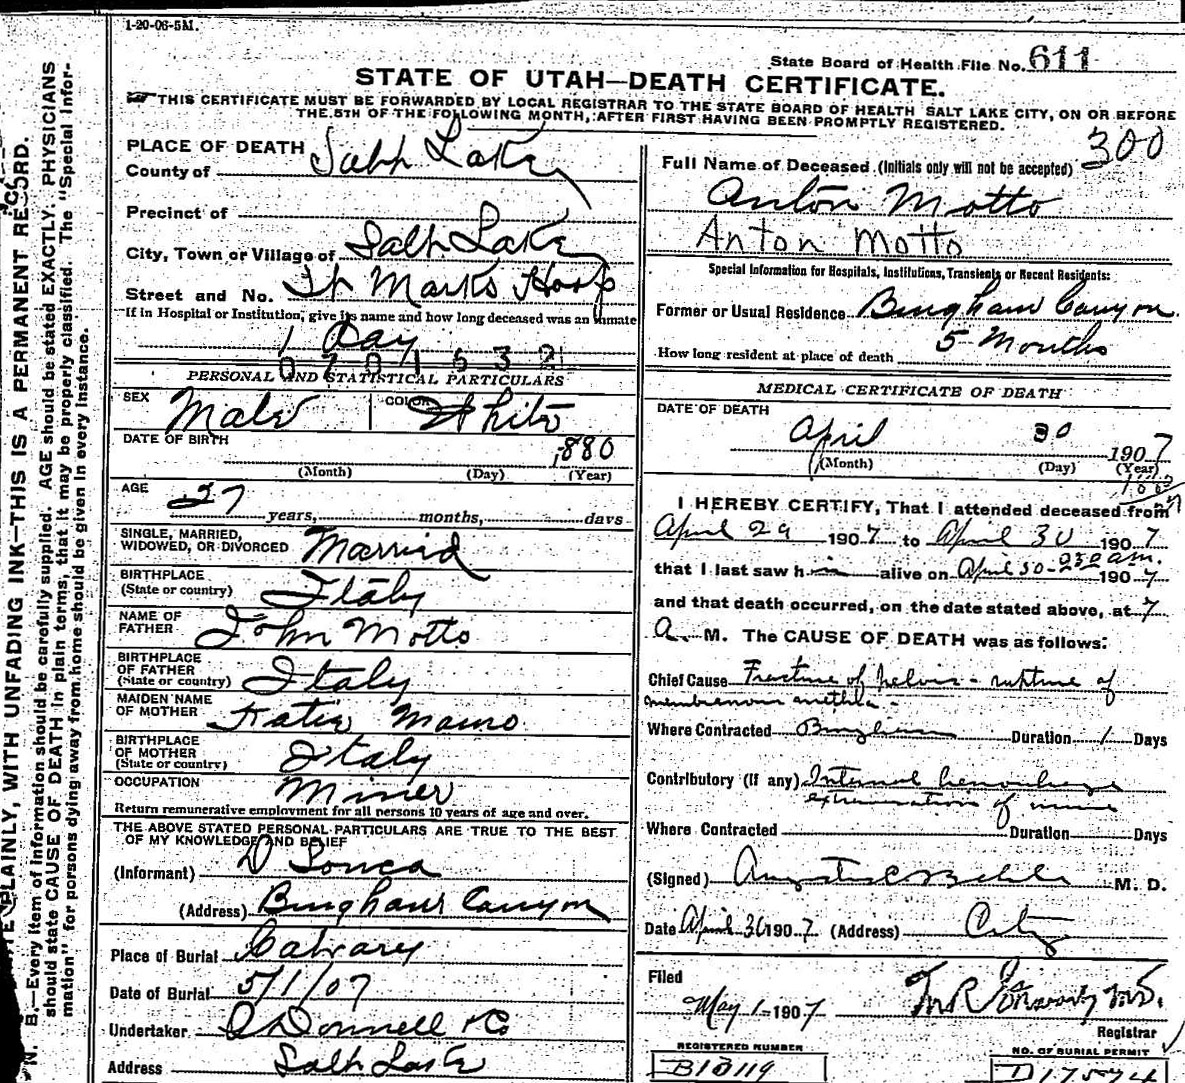 1-20-06-5M.
State Board of Health File No. 611
STATE OF UTAH—DEATH CERTIFICATE.
THIS CERTIFICATE MUST BE FORWARDED BY LOCAL REGISTRAR TO THE STATE BOARD OF HEALTH SALT LAKE CITY, ON OR BEFORE
THE 5TH OF THE FOLLOWING MONTH, AFTER FIRST HAVING BEEN PROMPTLY REGISTERED.
N. B.—Every item of information should be carefully supplied. AGE should be stated EXACTLY. PHYSICIANS
should state CAUSE OF DEATH in plain terms, that it may be properly classified. The "Special Infor-
mation" for persons dying away from home should be given in every instance.
PLAINLY, WITH UNFADING INK—THIS IS A PERMANENT RECORD.
PLACE OF DEATH
County of Salt Lake
Precinct of
City, Town or Village of Salt Lake
Street and No. St Marks Hosp
If in Hospital or Institution, give its name and how long deceased was an inmate
1 Day
0701532
PERSONAL AND STATISTICAL PARTICULARS
SEX Male COLOR White
DATE OF BIRTH 1880
(Month) (Day) (Year)
AGE 27
years, months, days
SINGLE, MARRIED,
WIDOWED, OR DIVORCED Married
BIRTHPLACE
(State or country) Italy
NAME OF
FATHER John Motto
BIRTHPLACE
OF FATHER
(State or country) Italy
MAIDEN NAME
OF MOTHER Katie Mauro
BIRTHPLACE
OF MOTHER
(State or country) Italy
OCCUPATION Miner
Return remunerative employment for all persons 10 years of age and over.
THE ABOVE STATED PERSONAL PARTICULARS ARE TRUE TO THE BEST
OF MY KNOWLEDGE AND BELIEF
(Informant) D
(Address) Bingham Canyon
Place of Burial Calvary
Date of Burial 5/1/07
Undertaker O'Donnell & Co
Address Salt Lake
300
Full Name of Deceased (Initials only will not be accepted)
Anton Motto
Anton Motto
Special Information for Hospitals, Institutions, Transients or Recent Residents:
Former or Usual Residence Bingham Canyon
How long resident at place of death 5 Months
MEDICAL CERTIFICATE OF DEATH
DATE OF DEATH
April 30 1907
(Month) (Day) (Year)
I HEREBY CERTIFY, That I attended deceased from
April 29 1907 to April 30 1907
that I last saw him alive on April 30 - 2 30 am. 1907
and that death occurred, on the date stated above, at 7
A. M. The CAUSE OF DEATH was as follows:
Chief Cause Fracture of pelvis - rupture of
membranous urethra -
Where Contracted Bingham Duration 1 Days
Contributory (if any) Internal hemorrhage
extravasation of urine
Where Contracted Duration Days
(Signed) M. D.
Date April 30 1907 (Address) City
Filed
May 1 1907
Registrar
REGISTERED NUMBER
B13119
NO. OF BURIAL PERMIT